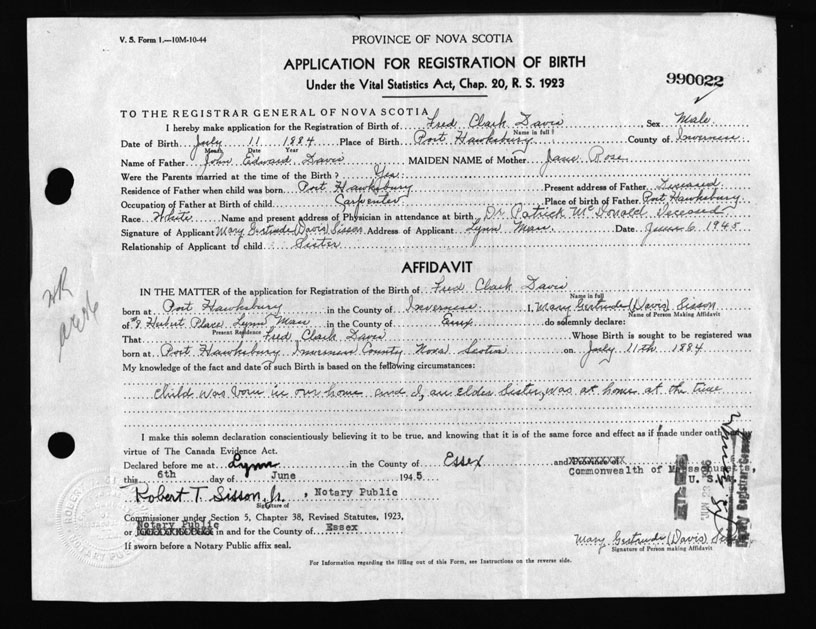 V. S. Form 1.—10M-10-44
PROVINCE OF NOVA SCOTIA
APPLICATION FOR REGISTRATION OF BIRTH
Under the Vital Statistics Act, Chap. 20, R. S. 1923
990022
TO THE REGISTRAR GENERAL OF NOVA SCOTIA
I hereby make application for the Registration of Birth of Fred Clark Davis Sex Male
Name in full
Date of Birth July 11 1884 Place of Birth Port Hawksbury County of Inverness
Month Date Year
Name of Father John Edward Davis MAIDEN NAME of Mother Jane Ross
Were the Parents married at the time of the Birth? Yes
Residence of Father when child was born Port Hawksbury Present address of Father Deceased
Occupation of Father at Birth of child Carpenter Place of birth of Father Port Hawksbury
Race White Name and present address of Physician in attendance at birth Dr Patrick McDonald Deceased
Signature of Applicant Mary Gertrude (Davis) Sisson Address of Applicant Lynn Mass Date June 6 1945
Relationship of Applicant to child Sister
AFFIDAVIT
IN THE MATTER of the application for Registration of the Birth of Fred Clark Davis
Name in full
born at Port Hawksbury in the County of Inverness I, Mary Gertrude (Davis) Sisson
Name of Person Making Affidavit
of Place Lynn Mass in the County of Essex do solemnly declare:
Present Residence
That Fred Clark Davis Whose Birth is sought to be registered was
born at Port Hawksbury Inverness County Nova Scotia on July 11th 1884
My knowledge of the fact and date of such Birth is based on the following circumstances:
Child was born in our home and I, an Elder Sister, was at home at the time
I make this solemn declaration conscientiously believing it to be true, and knowing that it is of the same force and effect as if made under oath
virtue of The Canada Evidence Act.
Declared before me at Lynn in the County of Essex and
Commonwealth of Massachusetts,
this 6th day of June 1945 U. S.
Robert T. Sisson, Jr., Notary Public
Signature of
Commissioner under Section 5, Chapter 38, Revised Statutes, 1923,
Notary Public
or in and for the County of Essex
If sworn before a Notary Public affix seal.
Mary Gertrude (Davis)
Signature of Person making Affidavit
For Information regarding the filling out of this Form, see Instructions on the reverse side.